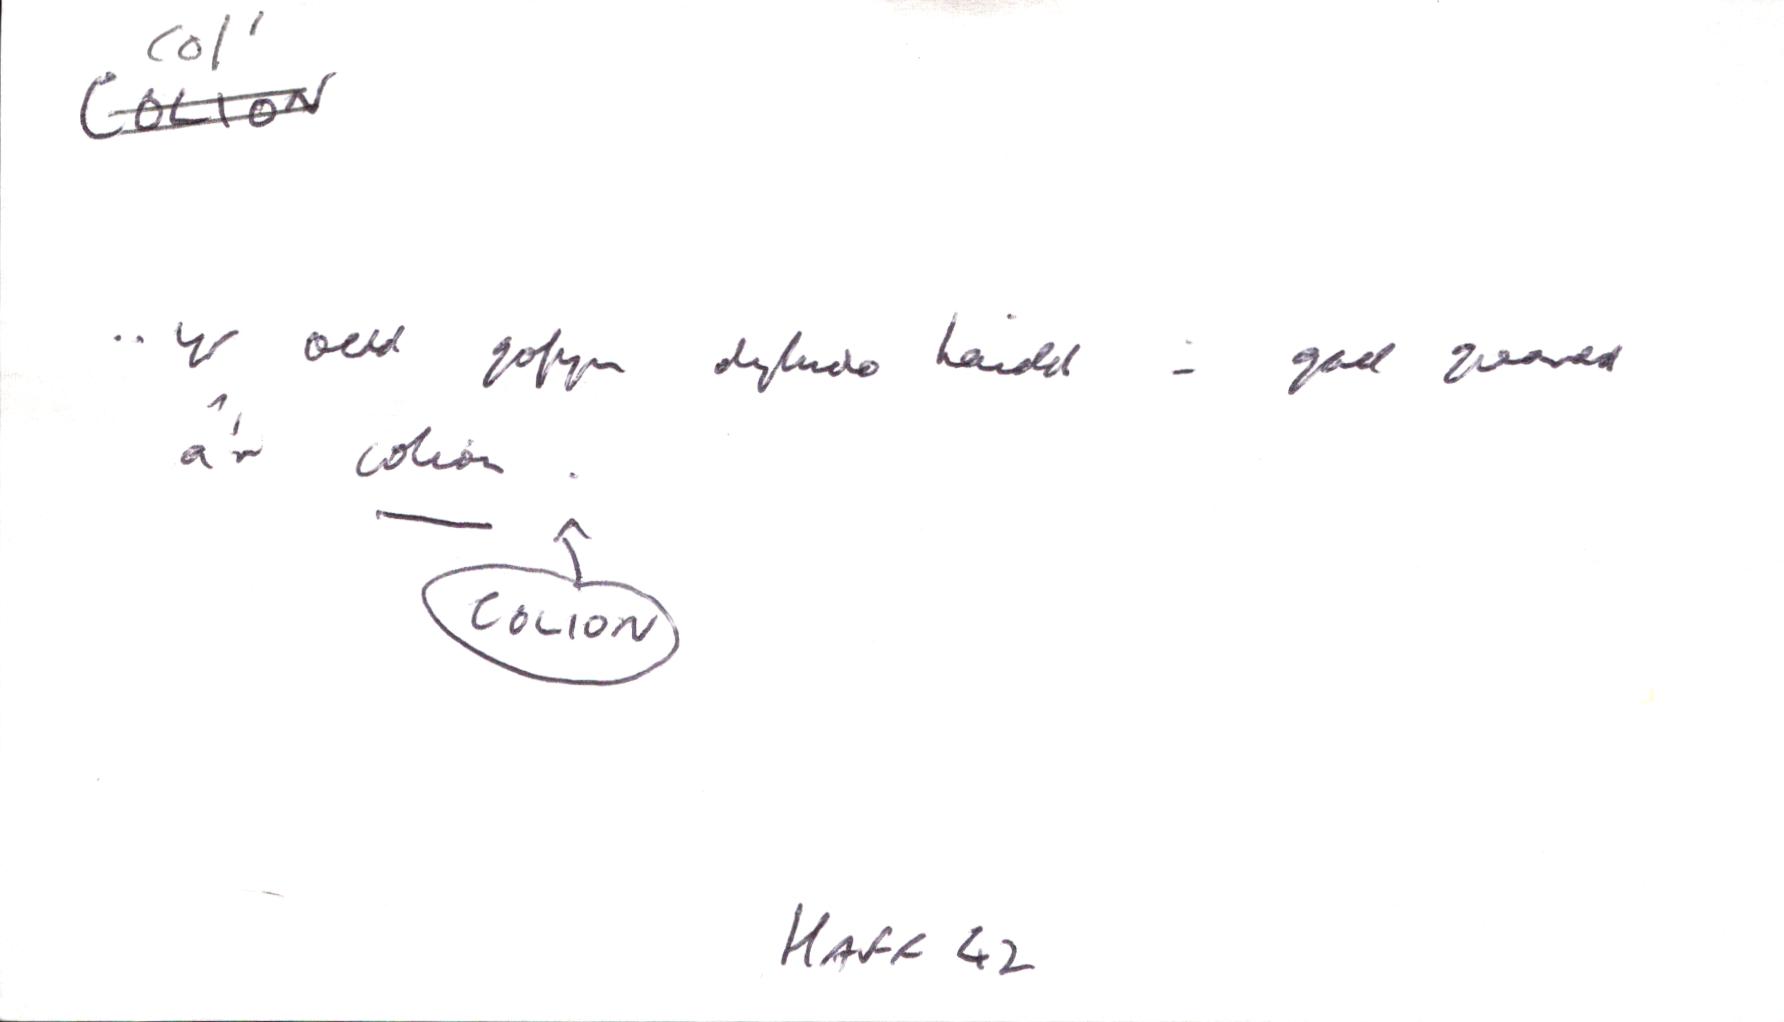 col'
COLION
.. Yr oedd gofyn dyludo haidd i gael gwared
â'r colion.
COLION
HAFF 42